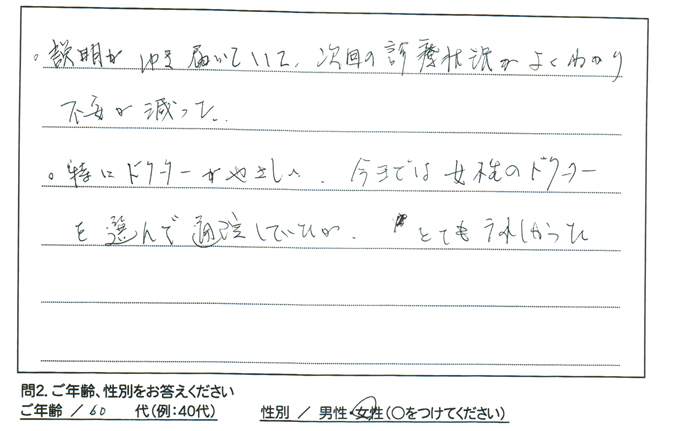 。説明がゆき届いていて、次回の診療状況がよくわかり
不安が減った。
。特にドクターがやさしい。今までは女性のドクター
を選んで通院していたが、とてもうれしかった
問2. ご年齢、性別をお答えください
ご年齢 / 60 代(例:40代) 性別 / 男性・女性(○をつけてください)